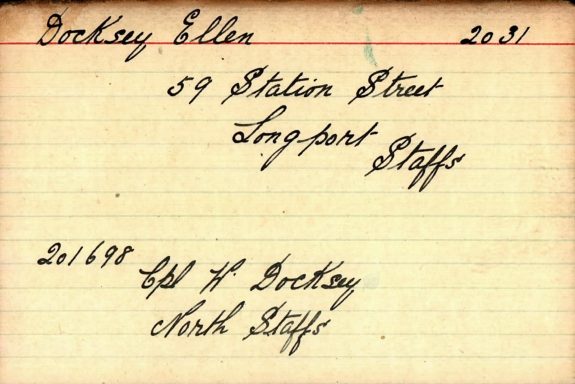 Docksey Ellen 2031
59 Station Street
Longport
Staffs
201698
Cpl W. Docksey
North Staffs